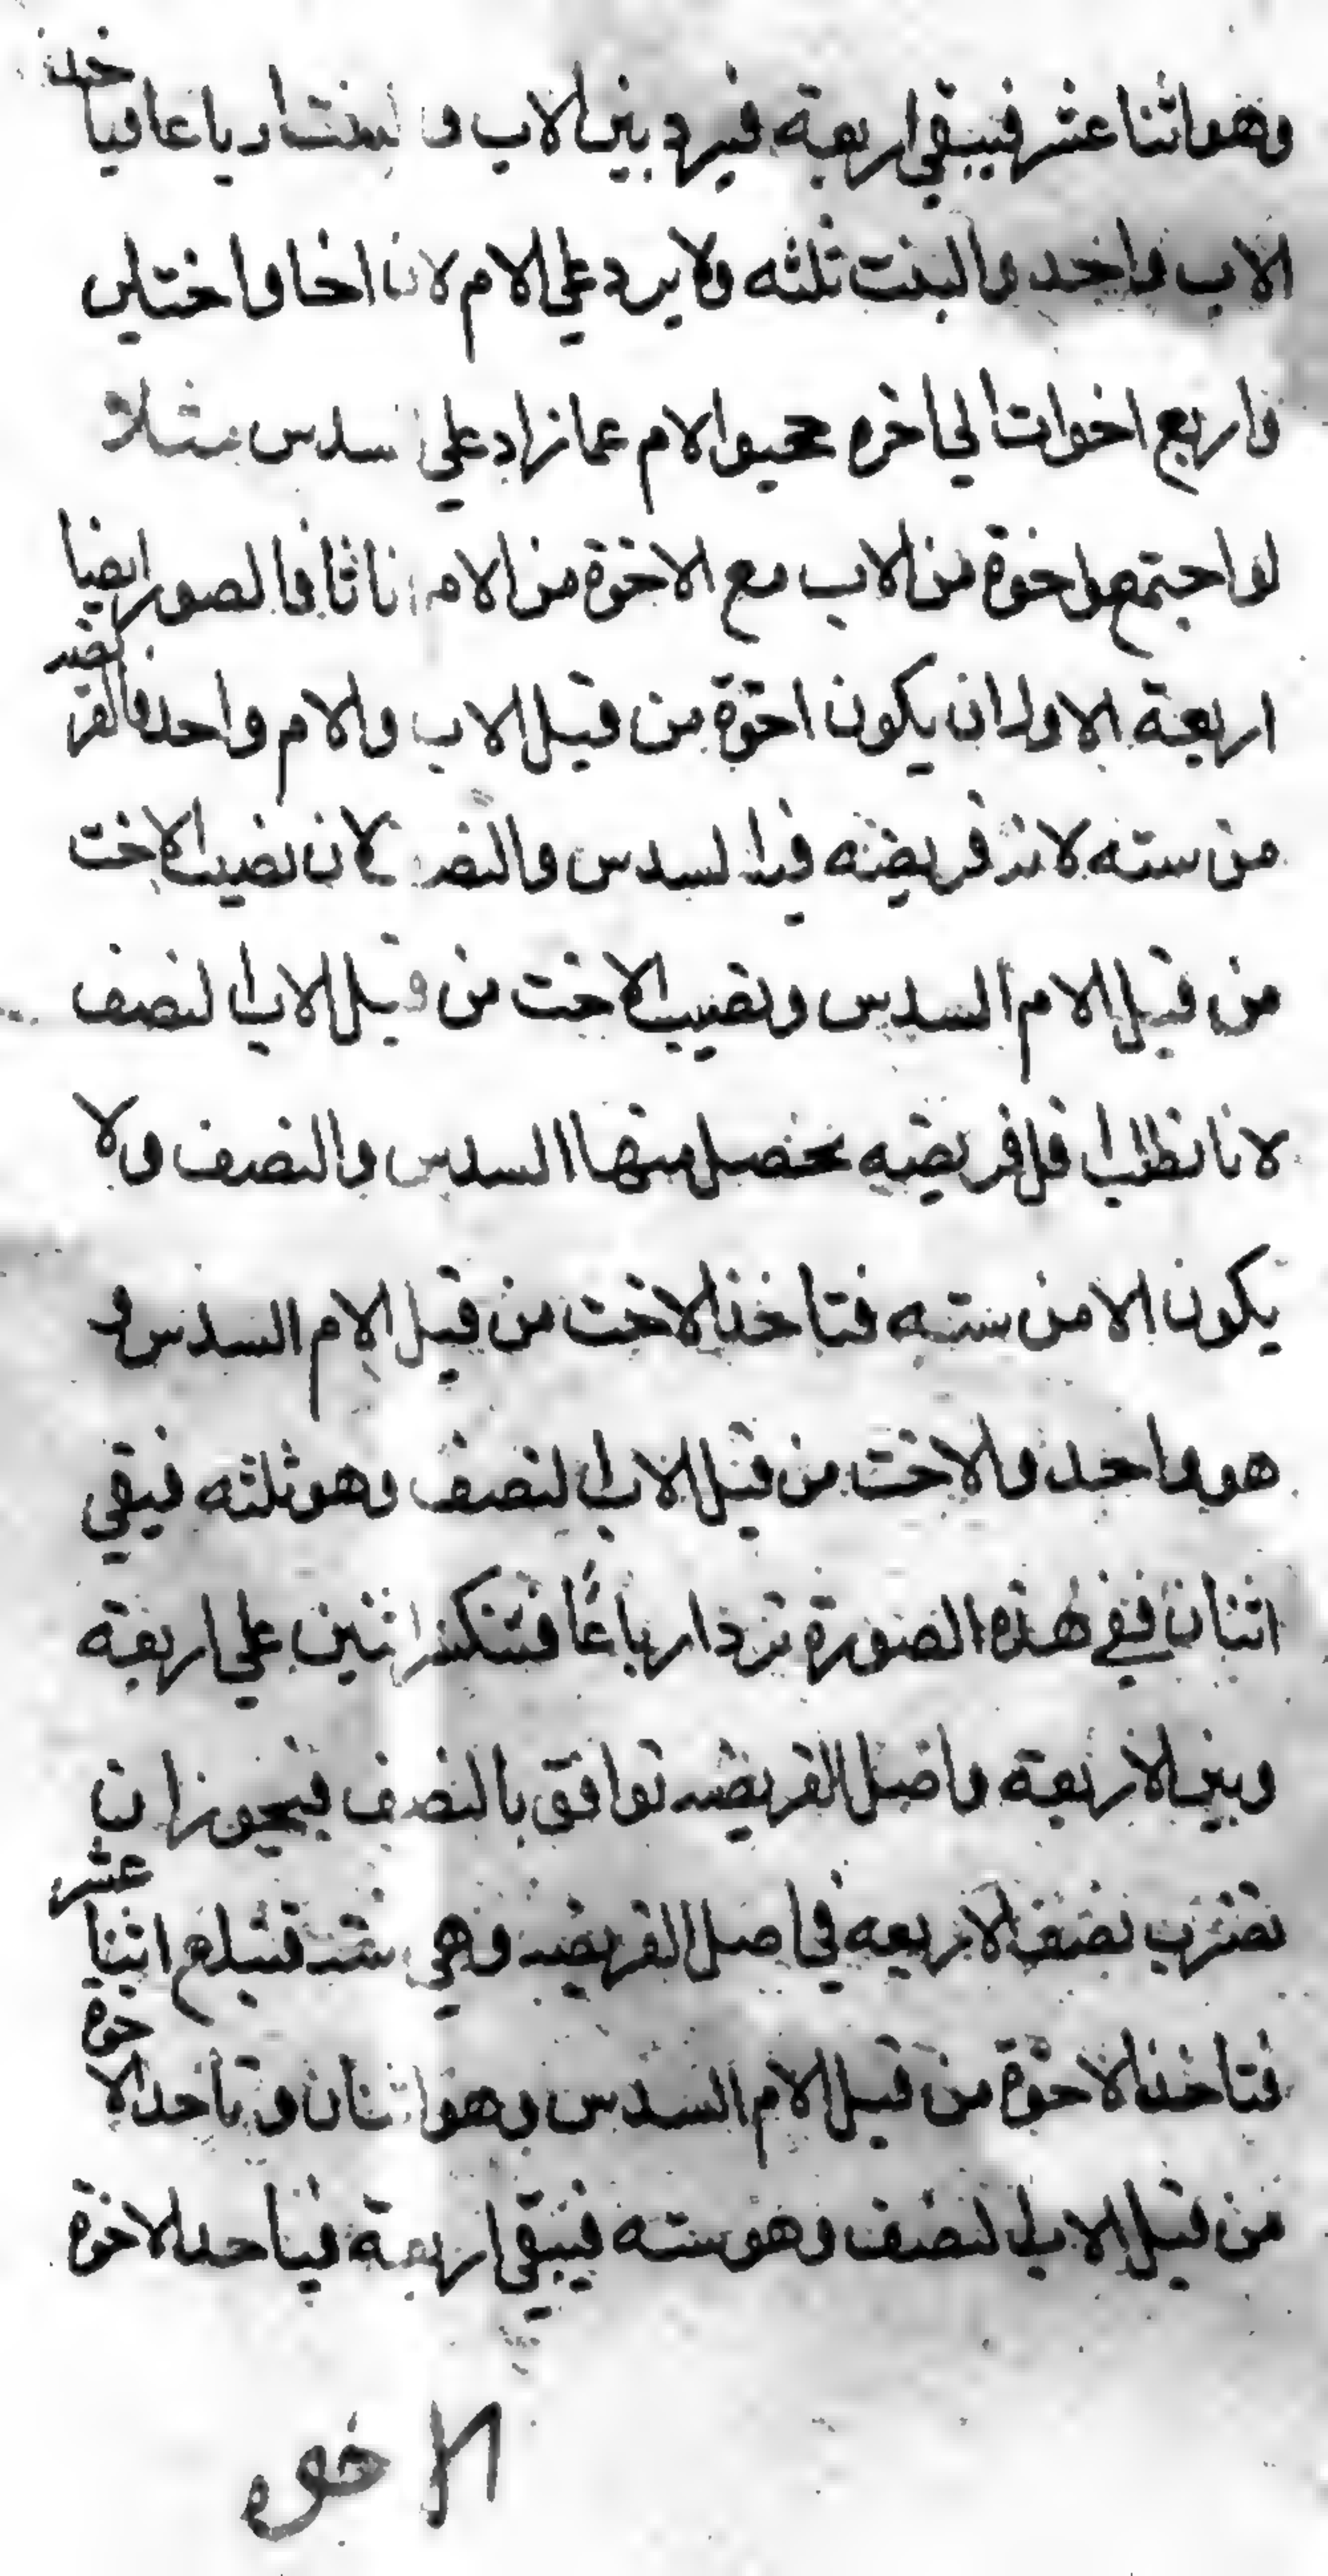 وهو اثنا عشر فيبقي اربعة فيرد بين الاب و البنت ارباعا فياخذ
الاب واحد والبنت ثلثه ولا يرد علي الام لان اخا واختين
واربع اخوات الي اخره حجبوا الام عما زاد علي سدس مثلا
لو اجتمع اخوة من الاب مع الاخوة من الام اناثا فالصور ايضا
اربعة الاول ان يكون اخوة من قبل الاب والام واحد فالفريضه
من سته لان فريضه فيها السدس والنصف لان نصيب الاخت
من قبل الام السدس ونصيب الاخت من قبل الاب النصف
لانا نطلب اقل فريضه يحصل منها السدس والنصف ولا
يكون الا من سته فتاخذ الاخت من قبل الام السدس و
هو واحد والاخت من قبل الاب النصف وهو ثلثه فبقي
اثنان ففي هذه الصورة ترد ارباعًا فتنكسر اثنين علي اربعة
وبين الاربعة واصل الفريضه توافق بالنصف فيجوز ان
تضرب نصف الاربعه في اصل الفريضه وهي سته فتبلغ اثنا عشر
فتاخذ الاخوة من قبل الام السدس وهو اثنان وتاخذ الاخوة
من قبل الاب النصف وهو سته فيبقي اربعة فياخذ الاخوة
الاخوه